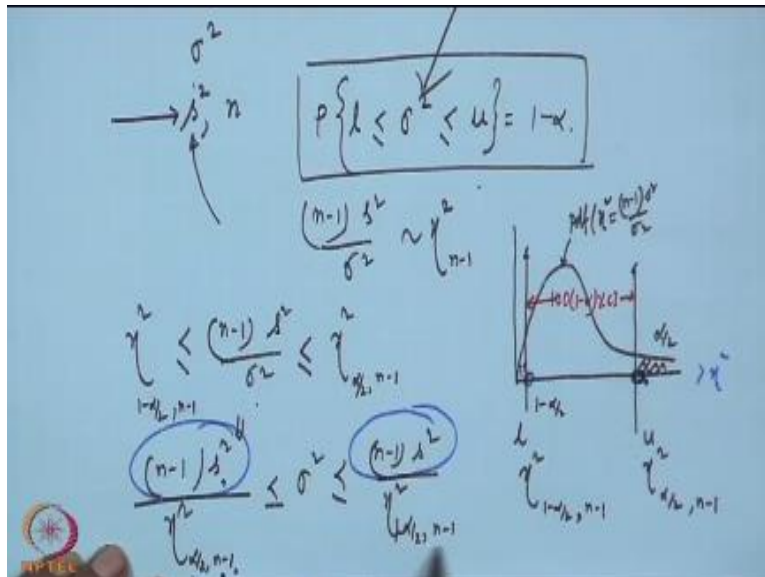 σ²
→ s², n
P{l ≤ σ² ≤ u} = 1-α.
(n-1) s² / σ² ~ χ²_{n-1}
pdf(χ² = (n-1)s²/σ²
100(1-α)% CI
α/2
χ²
1-α/2
l u
χ²_{1-α/2, n-1} χ²_{α/2, n-1}
χ²_{1-α/2, n-1} ≤ (n-1) s² / σ² ≤ χ²_{α/2, n-1}
(n-1) s² / χ²_{α/2, n-1} ≤ σ² ≤ (n-1) s² / χ²_{1-α/2, n-1}
NPTEL